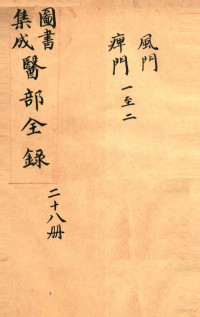 圖書
集成
醫部全録
二十八册
風門
痺門一至二